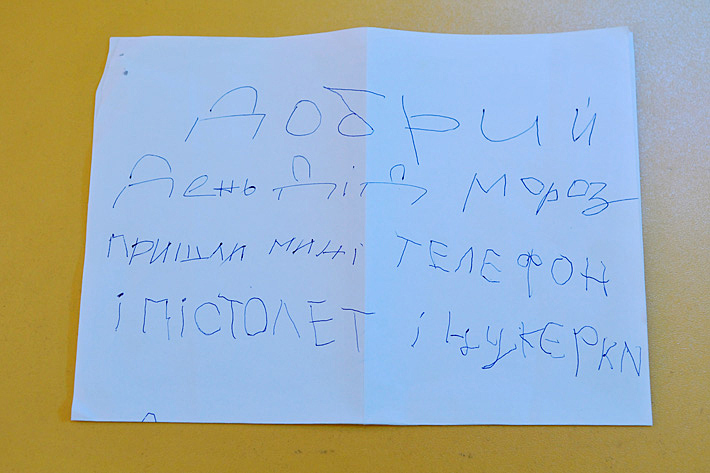 Добрий
День Дід мороз
пришли мині телефон
і пістолет і цукерки